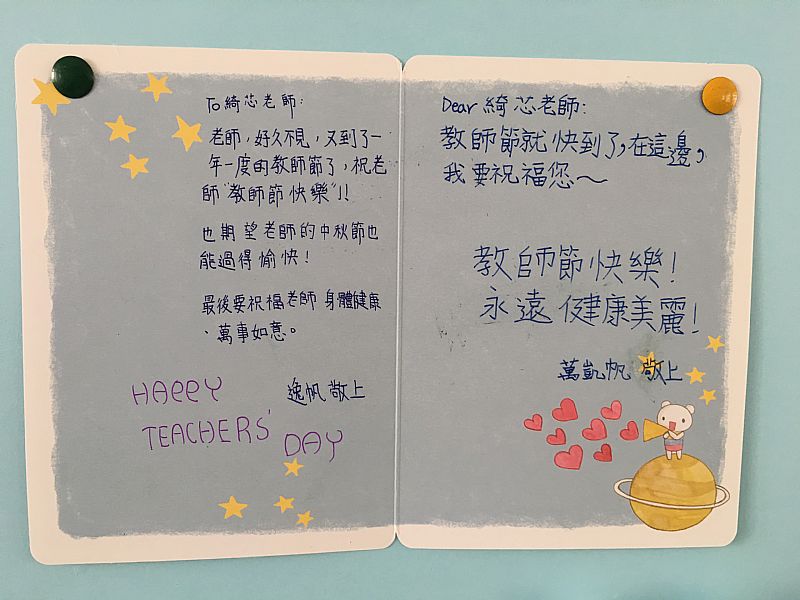 To 綺芯老師:
老師,好久不見,又到了一
年一度的教師節了,祝老
師"教師節快樂"!!
也期望老師的中秋節也
能過得愉快!
最後要祝福老師身體健康
、萬事如意。
逸帆敬上
HAPPY
TEACHERS'
DAY
Dear 綺芯老師:
教師節就快到了,在這邊,
我要祝福您~
教師節快樂!
永遠健康美麗!
萬凱帆 敬上